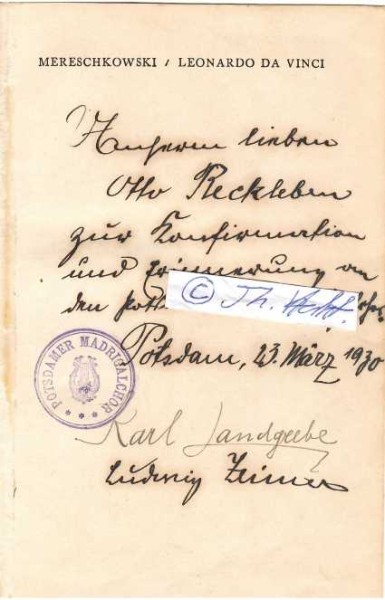 MERESCHKOWSKI / LEONARDO DA VINCI
Unserm lieben
Otto Reckleben
zur Konfirmation
und Erinnerung an
den
© Th.
Potsdam, 23. März 1930
POTSDAMER MADRIGALCHOR
Karl Landgrebe
Ludwig